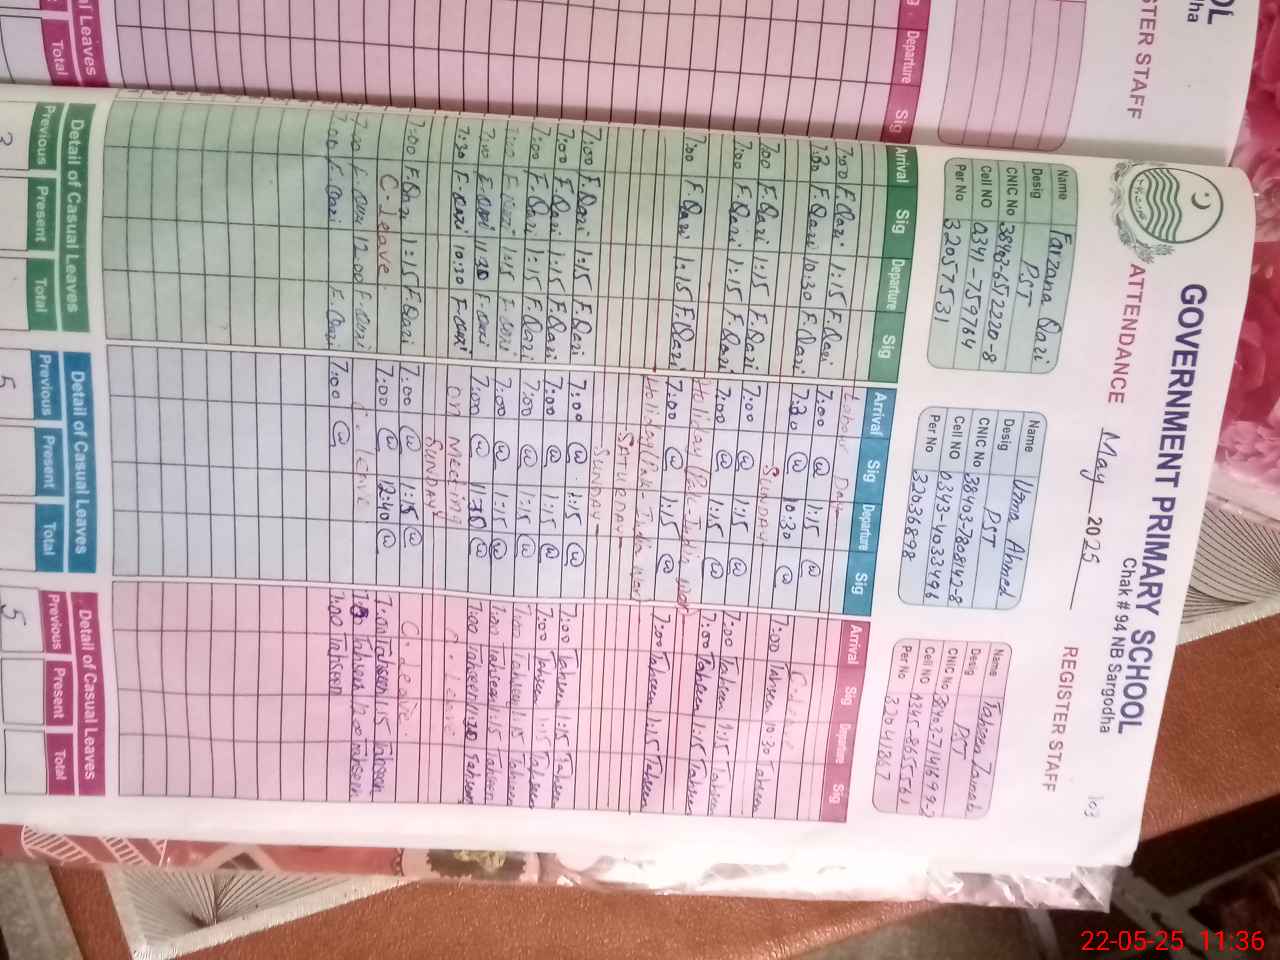 GOVERNMENT PRIMARY SCHOOL
Chak # 94 NB Sargodha
ATTENDANCE May 2025 REGISTER STAFF
103
Name Farzana Qazi
Desig PST
CNIC No 38403-6522220-8
Cell NO 0341-759764
Per No 32057531
Name Uzma Ahmed
Desig PST
CNIC No 38403-7808142-8
Cell NO 0343-4033496
Per No 32036898
Name Tahseen
Desig PST
CNIC No
Cell NO 0345-8655561
Per No 32041867
Arrival Sig Departure Sig
Arrival Sig Departure Sig
Arrival Sig Departure Sig
Labour Day
7:00 F.Qazi 1:15 F.Qazi 7:00 1:15
7:30 F.Qazi 10:30 F.Qazi 7:30 10:30 7:00 Tahseen 10:30 Tahseen
SUNDAY
7:00 F.Qazi 1:15 F.Qazi 7:00 1:15 7:00 Tahseen 1:15 Tahseen
7:00 F.Qazi 1:15 F.Qazi 7:00 1:15 7:00 Tahseen 1:15 Tahseen
Holiday (Pak-India War)
7:00 F.Qazi 1:15 F.Qazi 7:00 1:15 7:00 Tahseen 1:15 Tahseen
Holiday (Pak-India War)
SATURDAY
SUNDAY
7:00 F.Qazi 1:15 F.Qazi 7:00 1:15 7:00 Tahseen 1:15 Tahseen
7:00 F.Qazi 1:15 F.Qazi 7:00 1:15 7:00 Tahseen 1:15 Tahseen
7:00 F.Qazi 1:15 F.Qazi 7:00 1:15 7:00 Tahseen 1:15 Tahseen
7:00 F.Qazi 1:15 F.Qazi 7:00 1:15 7:00 Tahseen 1:15 Tahseen
7:00 F.Qazi 11:30 F.Qazi 7:00 7:00 Tahseen 11:30 Tahseen
7:30 F.Qazi 10:30 F.Qazi ON Meeting C. Leave
SUNDAY
7:00 F.Qazi 1:15 F.Qazi 7:00 1:15 C. Leave
C-Leave 7:00 12:40 7:00 Tahseen 1:15 Tahseen
7:00 F.Qazi 12:00 F.Qazi C. Leave Tahseen 12:00 Tahseen
7:00 F.Qazi F.Qazi 7:00 7:00 Tahseen
Detail of Casual Leaves
Previous Present Total
3
Detail of Casual Leaves
Previous Present Total
5
Detail of Casual Leaves
Previous Present Total
5
STER STAFF
Departure Sig
Leaves
Total
22-05-25 11:36